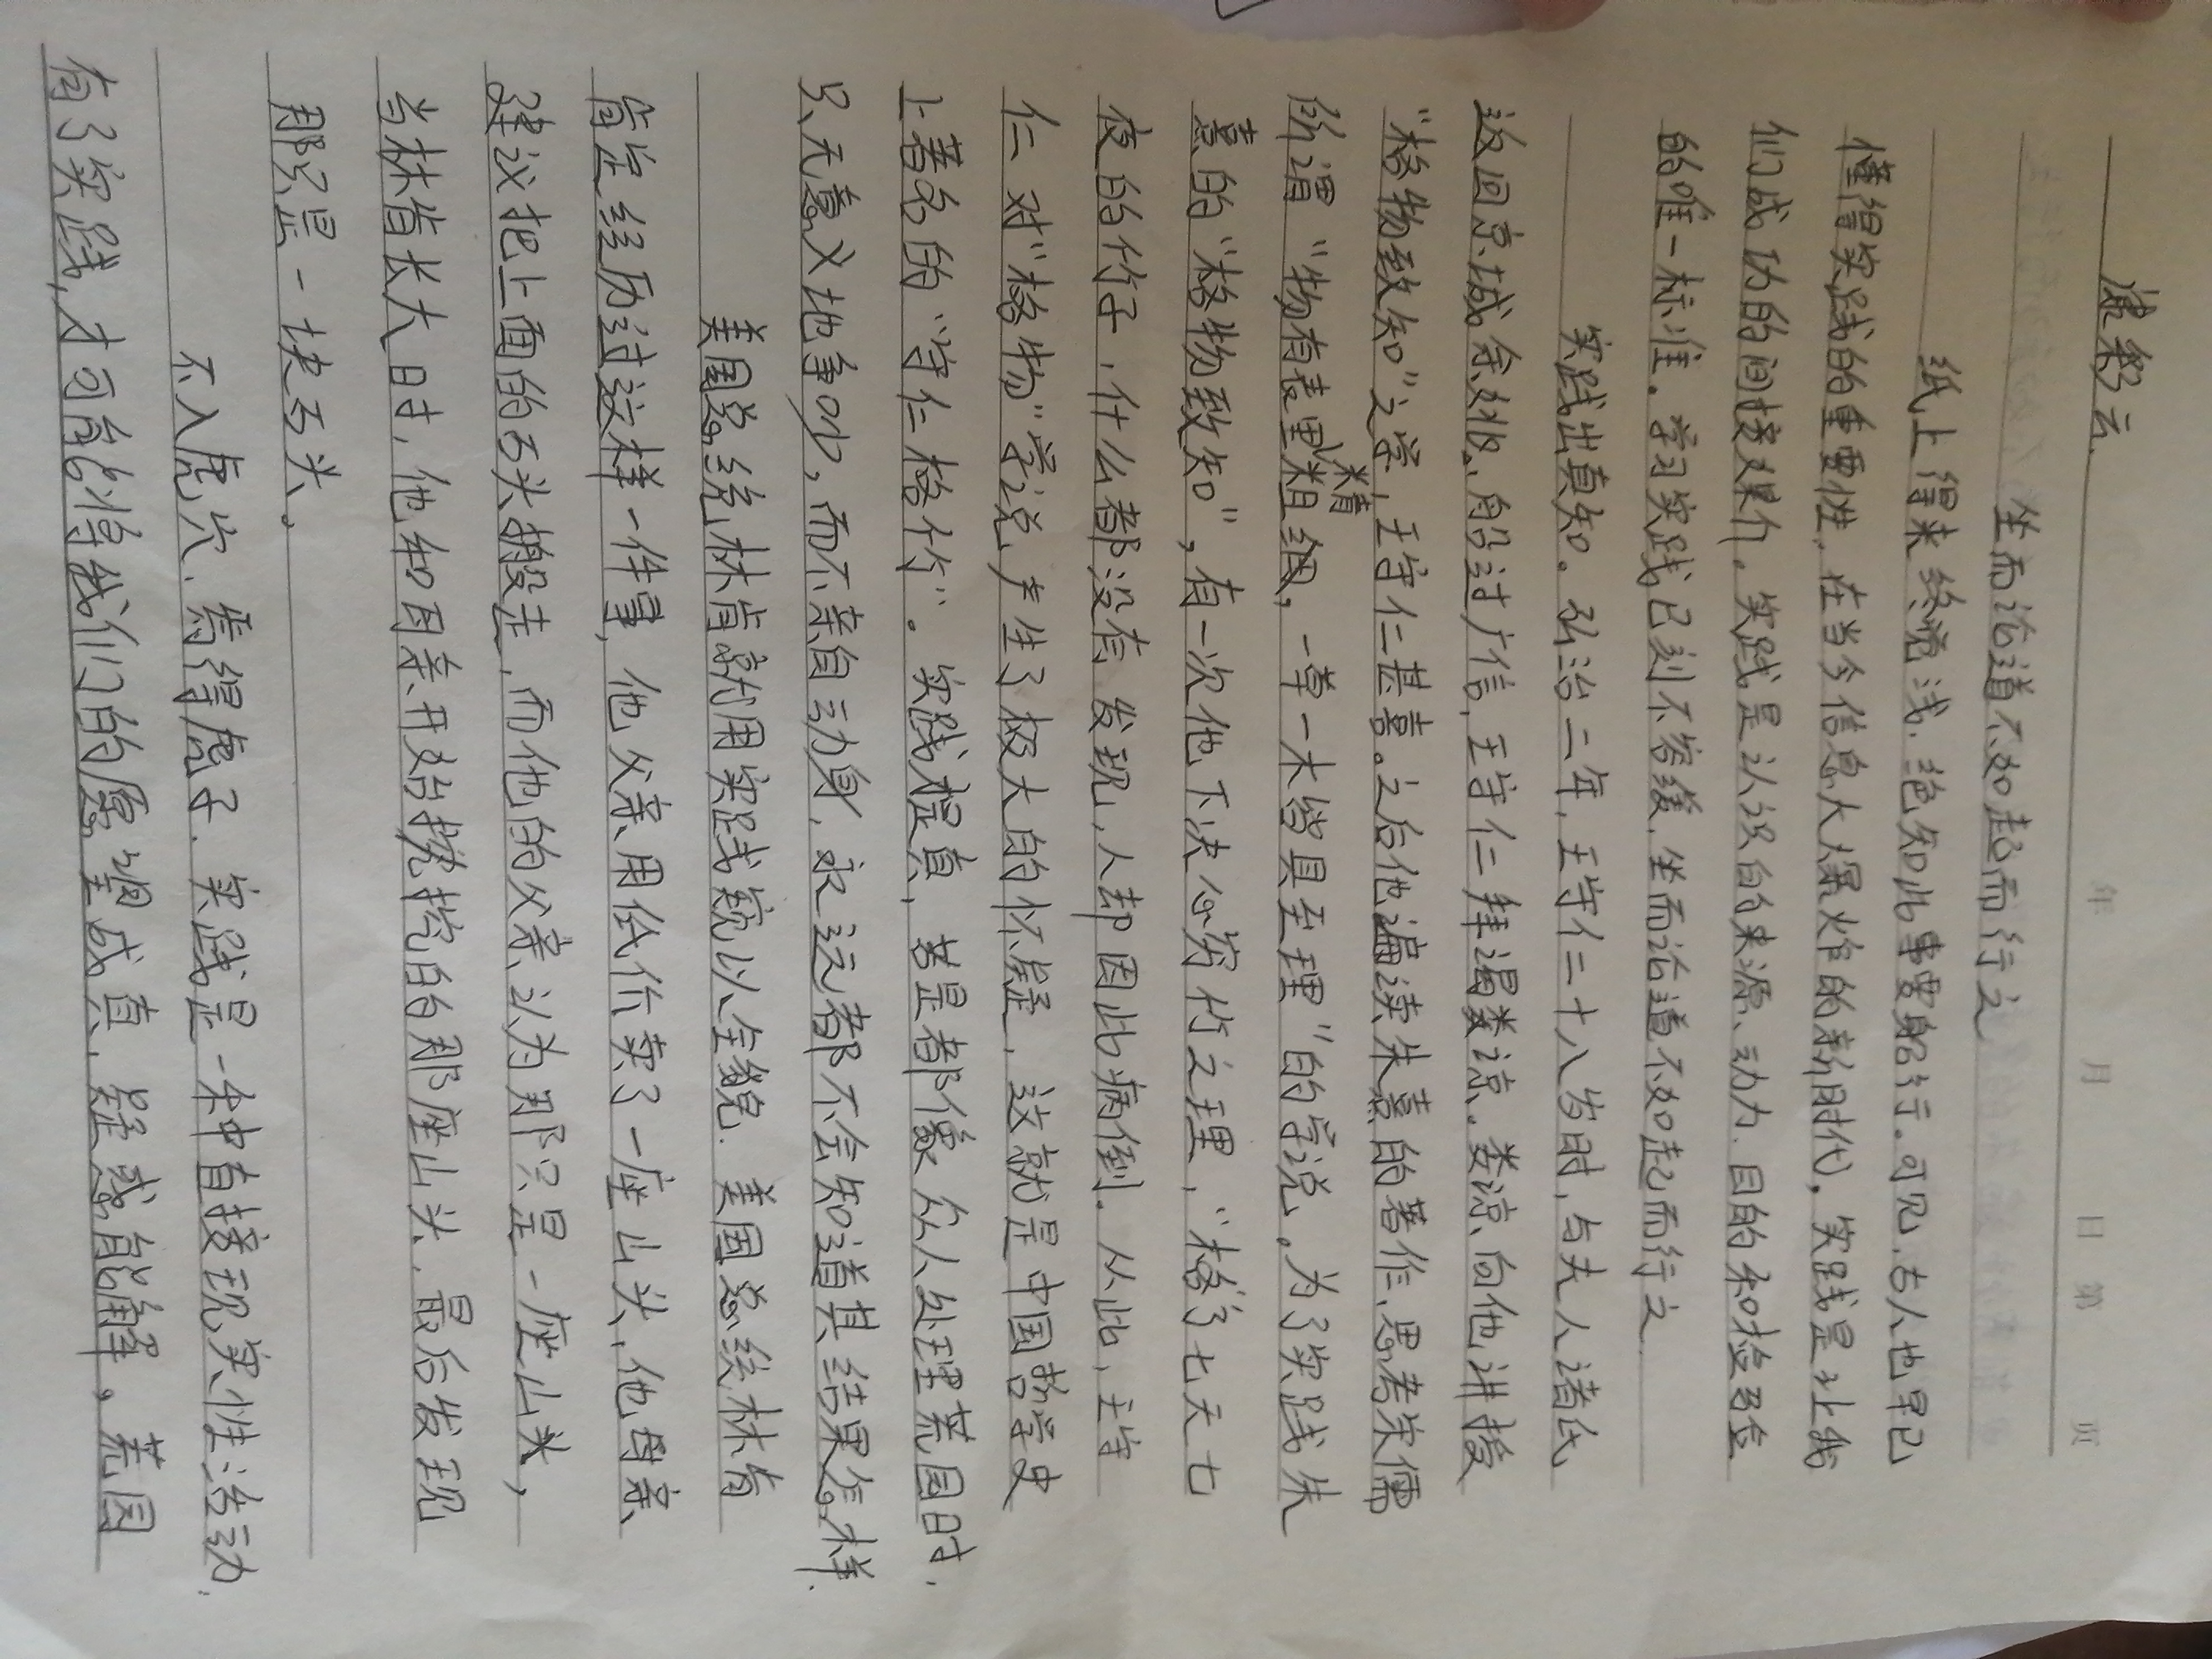 年 月 日 第 页
坐而论道不如起而行之
纸上得来终觉浅,绝知此事要躬行。可见,古人也早已
懂得实践的重要性,在当今信息大爆炸的新时代,实践是让我
们成功的间接媒介。实践是认识的来源、动力、目的和检验
的唯一标准。学习实践已刻不容缓,坐而论道不如起而行之
实践出真知。弘治二年,王守仁二十八岁时,与夫人诸氏
返回京城余姚,船过广信,王守仁拜谒娄谅。娄谅向他讲授
“格物致知”之学,王守仁甚喜。之后他遍读朱熹的著作,思考宋儒
所谓“物有表里精粗,一草一木皆具至理”的学说。为了实践朱
熹的“格物致知”,有一次他下决心穷竹之理,“格”了七天七
夜的竹子,什么都没有发现,人却因此病倒。从此,王守
仁对“格物”学说产生了极大的怀疑,这就是中国哲学史
上著名的“守仁格竹”。实践是真,若是都像众人处理荒园时,
只无意义地争吵,而不亲自动身,永远都不会知道其结果怎样.
美国总统林肯就用实践窥以全貌.美国总统林肯
肯定经历过这样一件事,他父亲用低价卖了一座山头,他母亲
建议把上面的石头搬走,而他的父亲认为那只是一座山头,
当林肯长大时,他和母亲开始挑挖的那座山头,最后发现
那只是一块石头。
不入虎穴,焉得虎子,实践是一余中直接现实性活动.
有了实践,才可能将我们的愿望成真,疑惑能解。荒园